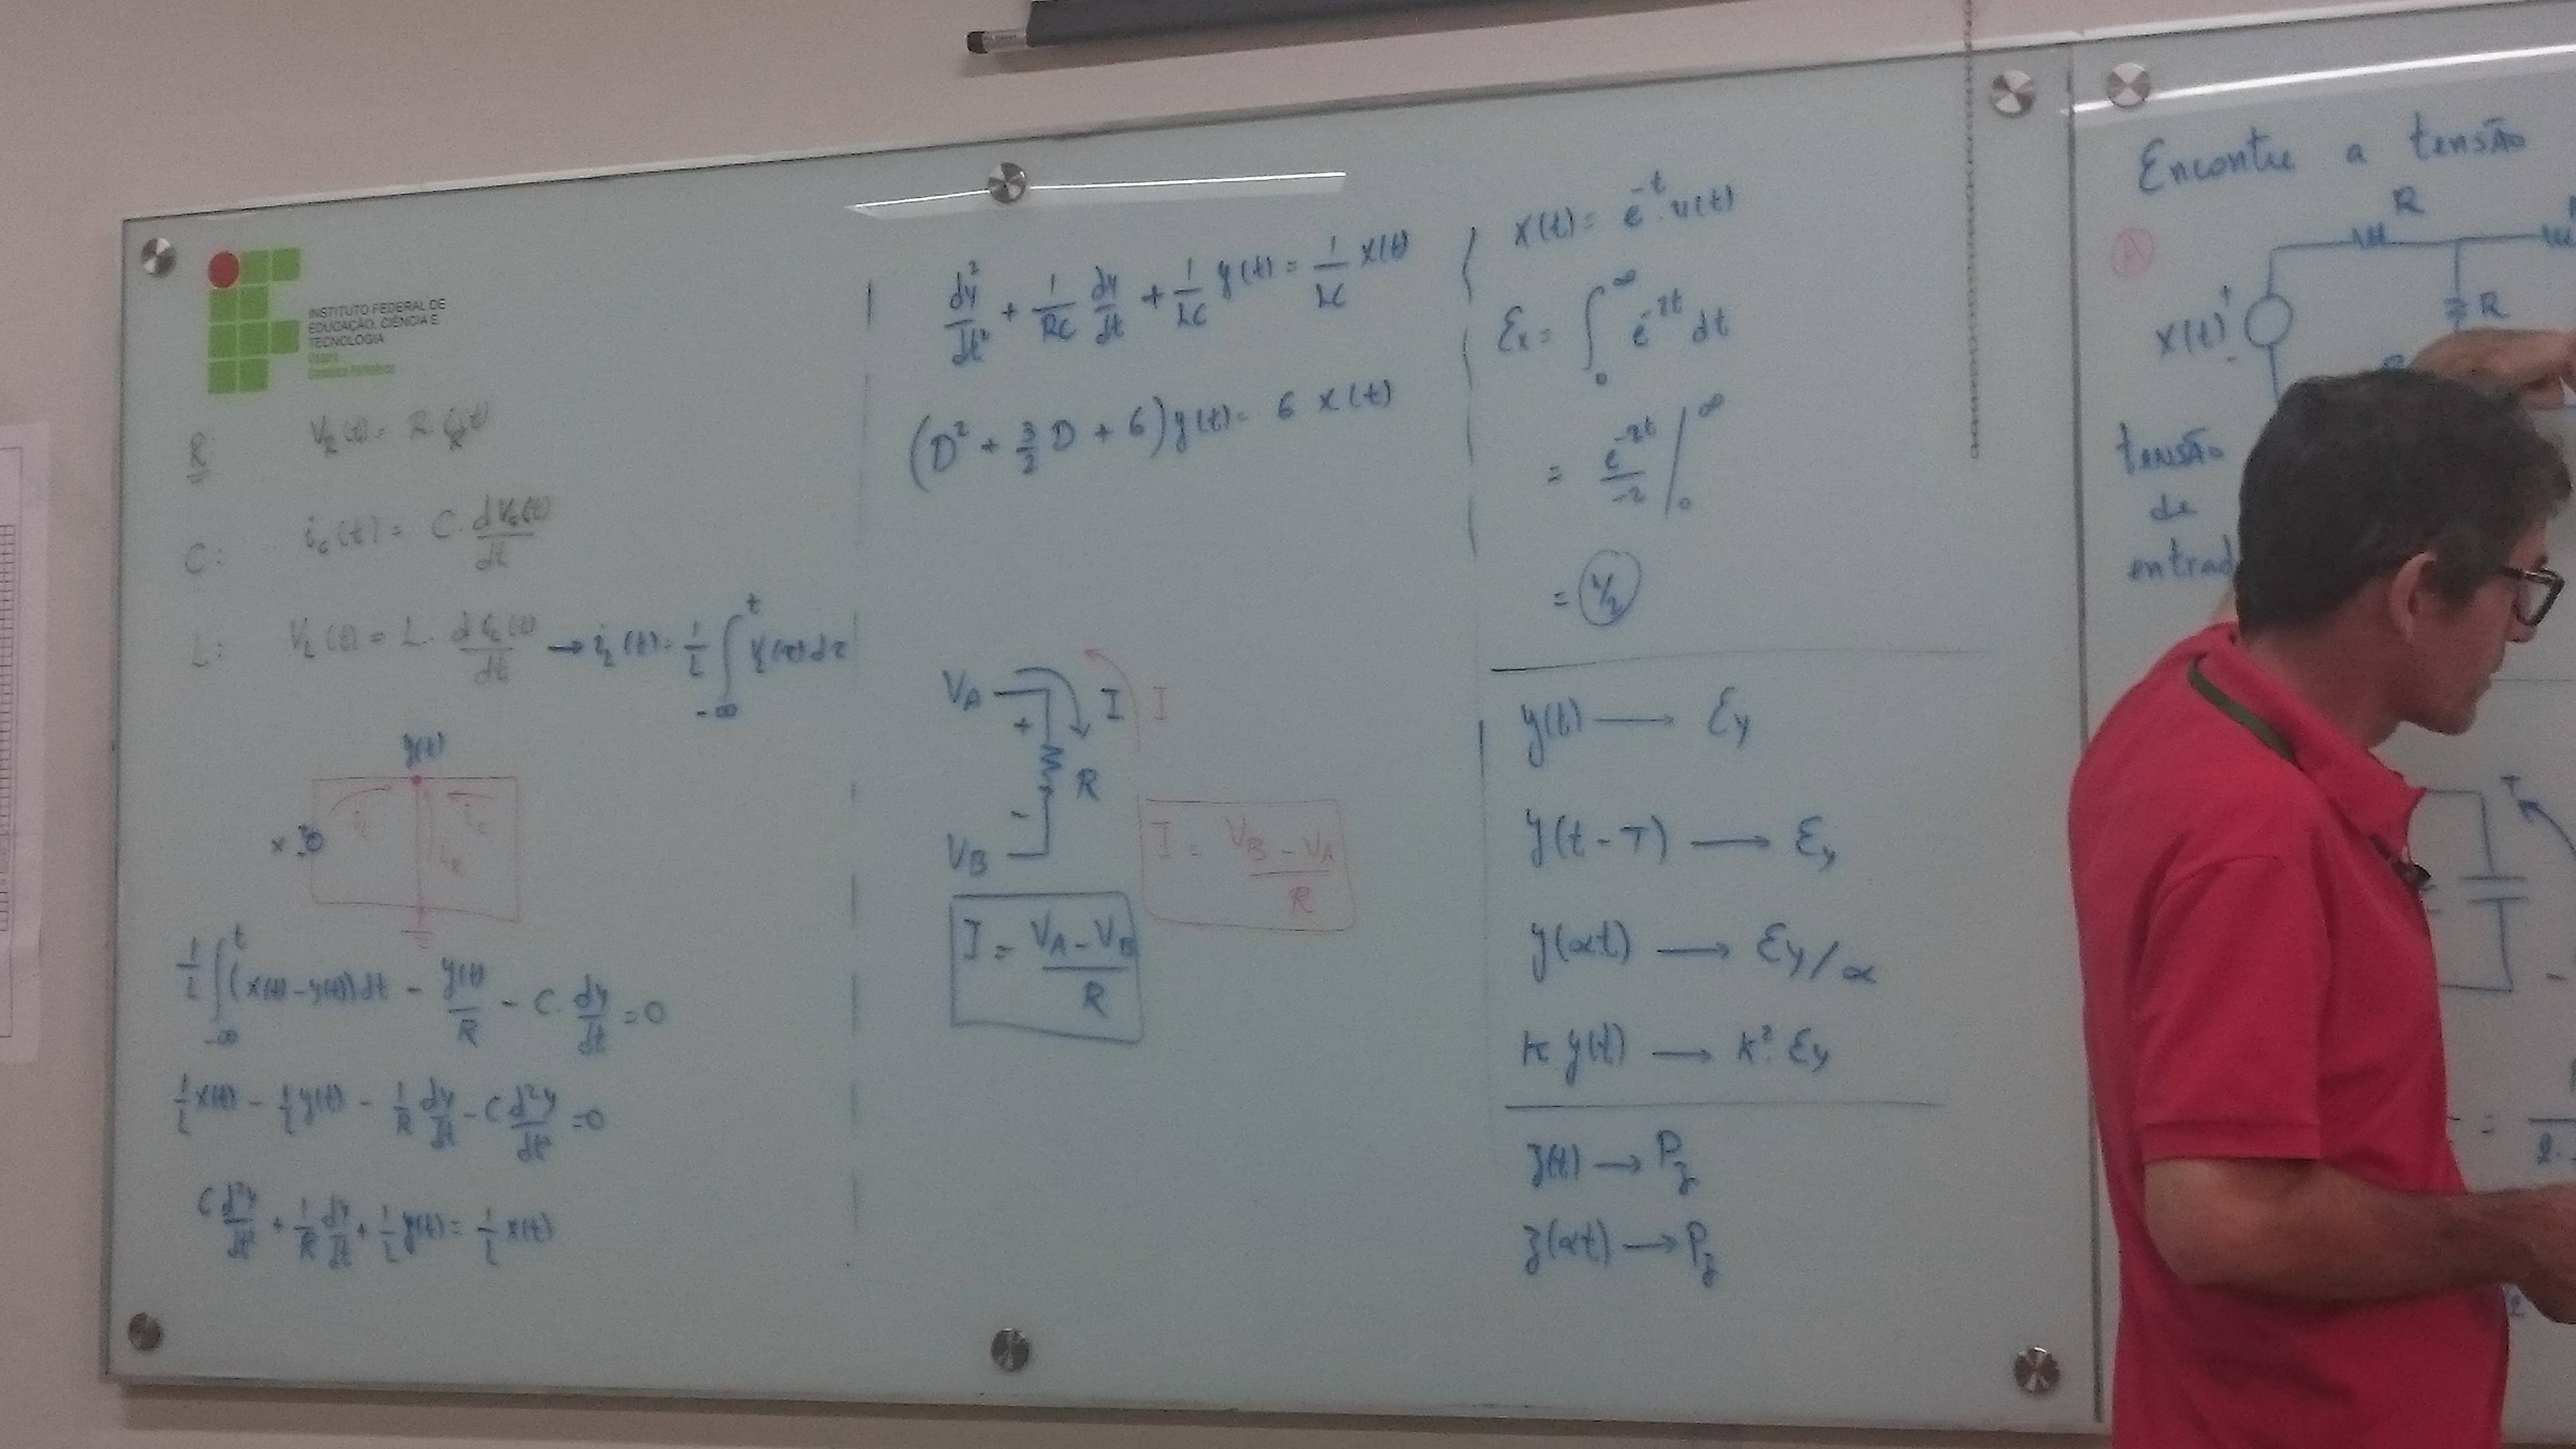 INSTITUTO FEDERAL DE
EDUCAÇÃO, CIÊNCIA E
TECNOLOGIA
Ceará
R:
C: i_c(t) = C. dV_c(t)/dt
L: V_L(t) = L. d i_L(t)/dt → i_L(t) = 1/L ∫_{-∞}^{t} V_L(τ)dτ
y(t)
i_L i_c
i_R
1/L ∫_{-∞}^{t} (x(t) - y(t))dt - y(t)/R - C. dy/dt = 0
1/L x(t) - 1/L y(t) - 1/R dy/dt - C d²y/dt² = 0
C d²y/dt² + 1/R dy/dt + 1/L y(t) = 1/L x(t)
d²y/dt² + 1/RC dy/dt + 1/LC y(t) = 1/LC x(t)
(D² + 3/2 D + 6) y(t) = 6 x(t)
V_A I I
+
R
-
V_B
I = (V_B - V_A)/R
I = (V_A - V_B)/R
x(t) = e^{-t}.u(t)
Ɛx = ∫_0^∞ e^{-2t} dt
= e^{-2t}/-2 |_0^∞
= 1/2
y(t) → Ɛy
y(t-T) → Ɛy
y(αt) → Ɛy/α
K y(t) → K². Ɛy
z(t) → P_z
z(αt) → P_z
Encontre a tensão
A R
x(t) + - R
tensão
de